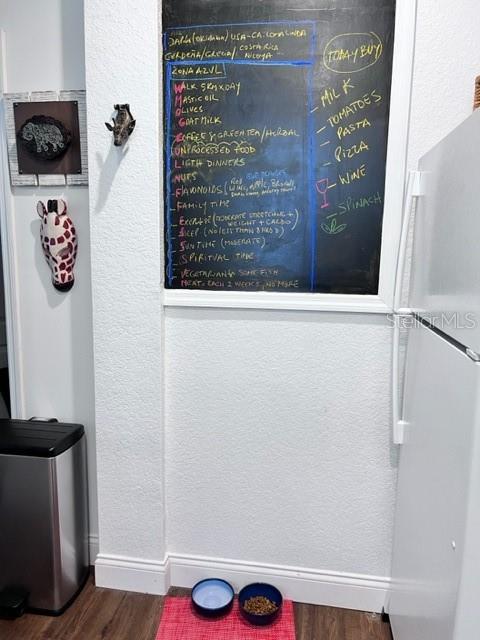 JAPAN (OKINAWA) / USA-CA: LOMA LINDA
CERDEÑA/GRECIA/ COSTA RICA
NICOYA
ZONA AZUL
WALK 5KM X DAY
MASTIC OIL
OLIVES
GOAT MILK
COFFEE & GREEN TEA/HERBAL
UNPROCESSED FOOD
LIGTH DINNERS
NUTS
FLAVONOIDS (RED
WINE, APPLE, BROCOLI,
FAMILY TIME
EXERCISE (MODERATE STRETCHING +
WEIGHT + CARDIO)
SLEEP (NO LESS THAN 8 HRS)
SUN TIME (MODERATE)
SPIRITUAL TIME
VEGETARIAN & SOME FISH
MEAT: EACH 2 WEEKS, NO MORE
TODAY BUY
- MILK
- TOMATOES
- PASTA
- PIZZA
- WINE
- SPINACH
StellarMLS